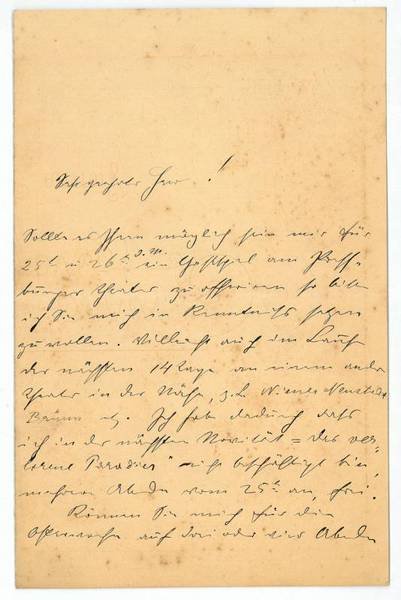 Sehr geehrter Herr!
Sollte es Ihnen möglich sein mir für
25t u 26t d. M. ein Gastspiel am Press-
burger Theater zu offeriren so bitte
ich Sie mich in Kenntniss setzen
zu wollen. Vielleicht auch im Laufe
der nächsten 14 Tage an einem andern
Theater in der Nähe, z. B. Wiener Neustadt
Brünn etz. Ich hab dadurch dass
ich in der nächsten Novität = das ver-
lorene Paradies" nicht beschäftigt bin,
mehrere Abende vom 25t an, frei.
Können Sie mich für die
Osterwoche auf drei oder vier Abende